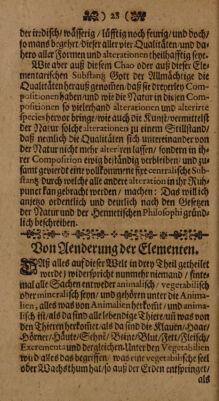 28
der irdisch/ wässerig / lüfftig noch feurig/ und doch/
so mans begehrt dieser aller vier Qualitäten und da-
hero aller Formen und alterationen theilhafftig seye.
Wie aber auß diesem Chao oder auß dieser Ele-
mentarischen Substantz Gott der Allmächtige die
Qualitäten herauß genothen/ daß sie dreyerley Com-
positionen haben und wie die Natur in diesen Com-
positionen so vielerhand alterationen und alterirte
species hervor bringe/ wie auch die Kunst/ vermittelst
der Natur solche alterationen zu einem Stillstand/
daß nemlich die Qualitäten sich untereinander von
der Natur nicht mehr alteriren lassen/ sondern in ih-
rer Composition ewig beständig verbleiben/ und zu-
samt gevierdt eine vollkommene fixe centralische Sub-
stantz durch welche alle andere alteration in ihr Ruh-
punct kan gebracht werden/ machen: Das will ich
anjetzo ordentlich und deutlich nach den Gesetzen
der Natur und der Hermetischen Philosophi gründ-
lich beschreiben.
Von Aenderung der Elementen.
Daß alles auf dieser Welt in drey Theil getheilet
werde/ widerspricht nunmehr niemand / sinte-
mal alle Sachen entweder animalisch/ vegetabilisch
oder mineralisch seyn/ und gehören unter die Anima-
lien, alles was von Animalien herkoñet/ und anima-
lisch ist/ als da sind alle lebendige Thiere/ uñ was von
den Thieren herkoñet/ als da sind die Klauen/ Haar/
Hörner/ Häute/ Sehne/ Beine/ Blut/ Fett/ Fleisch/
Excrementa und dergleichen. Unter den Vegetabilien
wird alles das begriffen/ was eine vegetabilische seel
oder Wachsthum hat/ so auß der Erden entspringet/
als